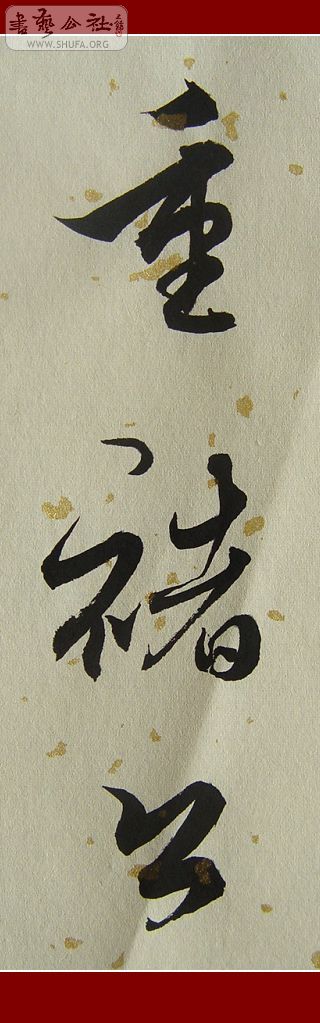 書藝公社
WWW.SHUFA.ORG
重
褚
公